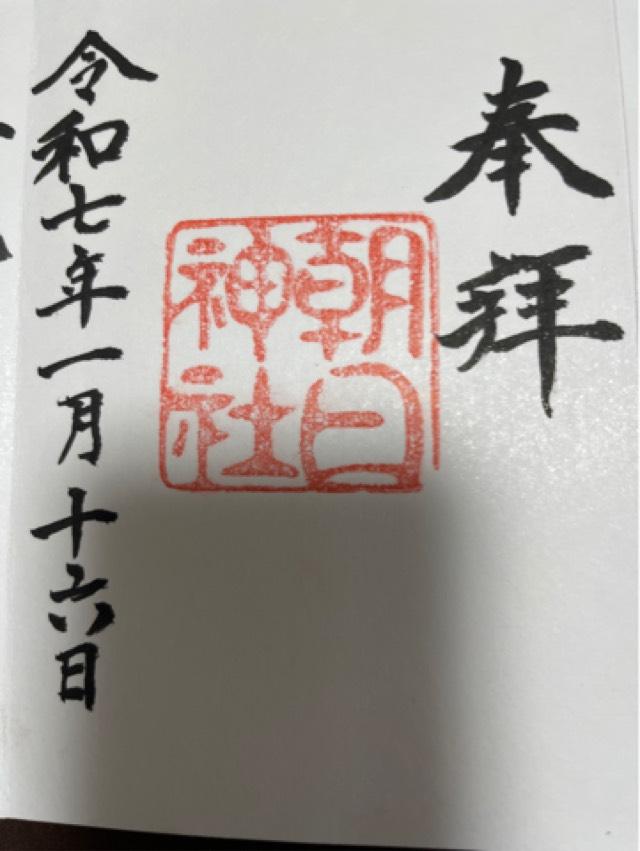 奉拝
朝日
神社
令和七年一月十六日